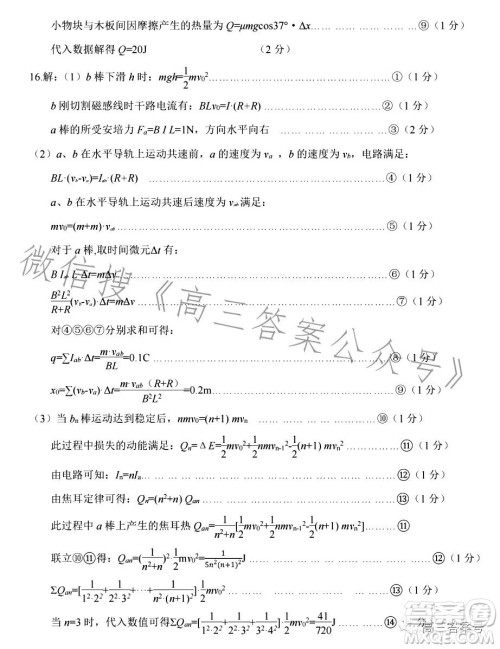 小物块与木板间因摩擦产生的热量为 Q=μmgcos37°·Δx……………⑨(1 分)
代入数据解得 Q=20J (2 分)
16.解:(1)b 棒下滑 h 时:mgh=\frac{1}{2}mv₀²……………①(1 分)
b 刚切割磁感线时干路电流有:BLv₀=I·(R+R)……………②(1 分)
a 棒的所受安培力 Fₐ=B I L=1N,方向水平向右 ……………③(1 分)
(2)a、b 在水平导轨上运动共速前,a 的速度为 vₐ,b 的速度为 v_b,电路满足:
BL·(v_b-vₐ)=I_{ab}·(R+R)……………④(1 分)
a、b 在水平导轨上运动共速后速度为 v_{ab}满足:
mv₀=(m+m)·v_{ab}……………⑤(1 分)
对于 a 棒,取时间微元Δt 有:
B I_{ab} L·Δt=mΔv……………⑥(1 分)
\frac{B²L²}{R+R}(v_b-vₐ)·Δt=mΔv……………⑦(1 分)
对④⑤⑥⑦分别求和可得:
q=∑I_{ab}·Δt=\frac{m·v_{ab}}{BL}=0.1C……………⑧(1 分)
x₀=∑(v_b-vₐ)·Δt=\frac{m·v_{ab}(R+R)}{B²L²}=0.2m……………⑨(1 分)
(3)当 bₙ棒运动达到稳定后,nmv₀=(n+1) mvₙ ⑩(1 分)
此过程中损失的动能满足:Qₙ=ΔE=\frac{1}{2}mv₀²+\frac{1}{2}nmvₙ₋₁²-\frac{1}{2}(n+1) mvₙ² ⑪(1 分)
由电路可知:Iₙ=nIₐₙ……………⑫(1 分)
由焦耳定律可得:Qₙ=(n²+n) Qₐₙ ……………⑬(1 分)
此过程中 a 棒上产生的焦耳热 Qₐₙ=\frac{1}{n²+n}[\frac{1}{2}mv₀²+\frac{1}{2}nmvₙ₋₁²-\frac{1}{2}(n+1) mvₙ²]
联立⑩⑪得:Qₐₙ=(\frac{1}{n²+n})²·\frac{1}{2}mv₀²=\frac{1}{5n²(n+1)²}J
ΣQₐₙ=[\frac{1}{1²·2²}+\frac{1}{2²·3²}+…+\frac{1}{(n²+n)²}]·\frac{1}{2}mv₀²
当 n=3 时,代入数值可得ΣQₐₙ=[\frac{1}{1²·2²}+\frac{1}{2²·3²}+\frac{1}{3²·4²}]·\frac{1}{2}mv₀²=\frac{41}{720}J ……………⑭
微信搜《高三答案公众号》
高三答案号